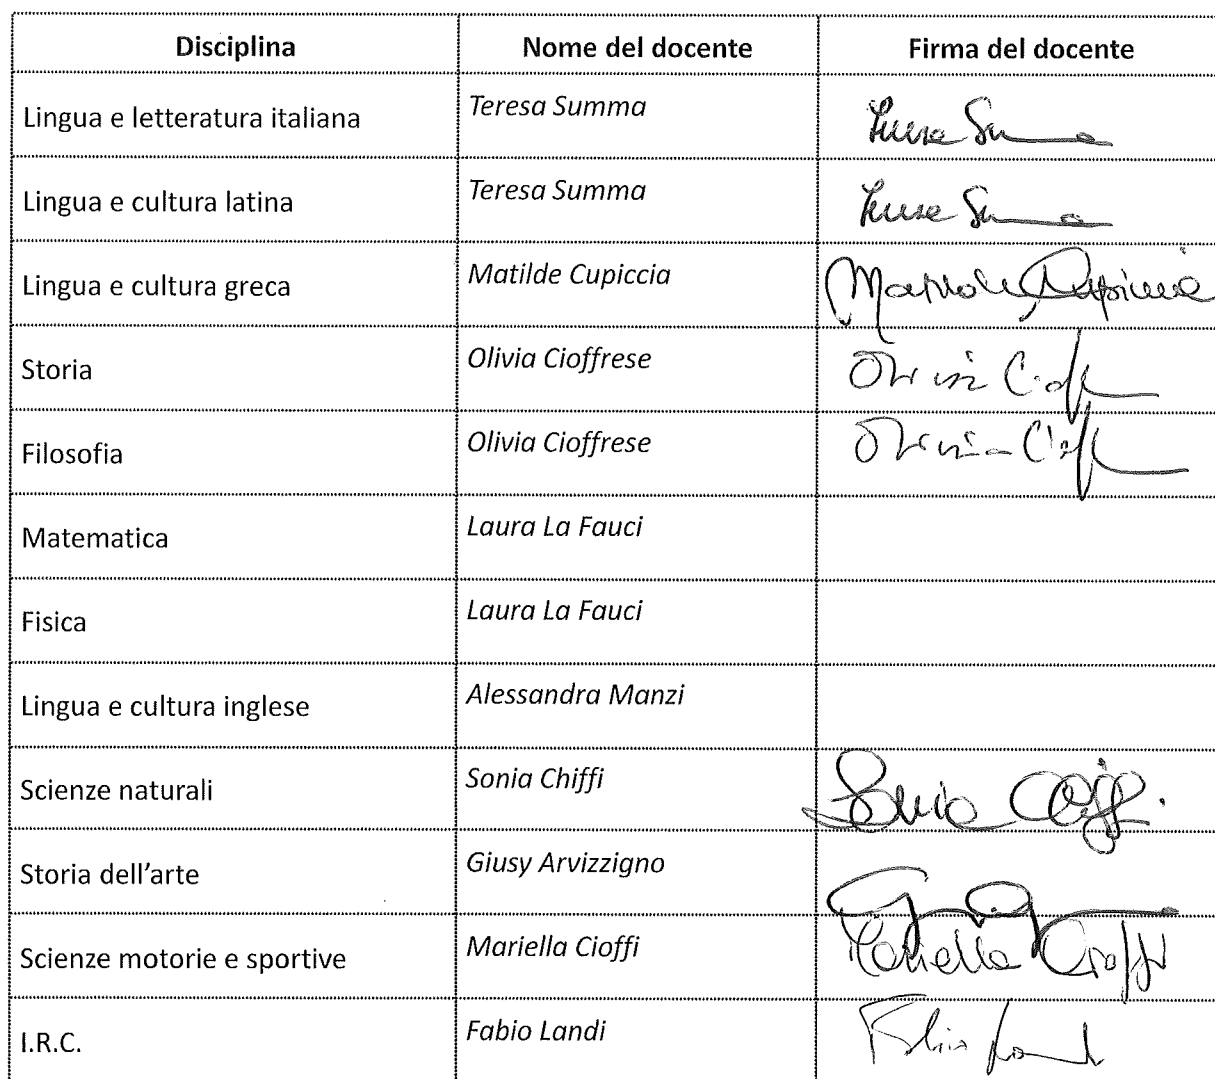 Disciplina Nome del docente Firma del docente
Lingua e letteratura italiana Teresa Summa Teresa Summa
Lingua e cultura latina Teresa Summa Teresa Summa
Lingua e cultura greca Matilde Cupiccia Matilde Cupiccia
Storia Olivia Cioffrese Olivia Cioff
Filosofia Olivia Cioffrese Olivia Cioff
Matematica Laura La Fauci
Fisica Laura La Fauci
Lingua e cultura inglese Alessandra Manzi
Scienze naturali Sonia Chiffi Sonia Chiffi
Storia dell'arte Giusy Arvizzigno
Scienze motorie e sportive Mariella Cioffi Mariella Cioffi
I.R.C. Fabio Landi Fabio Landi